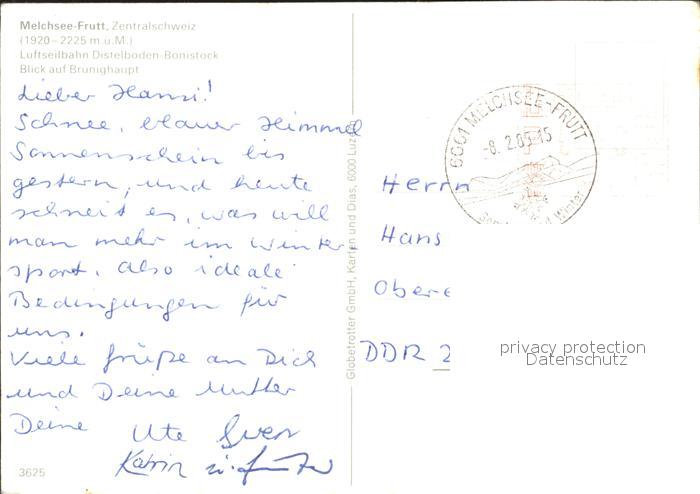 Melchsee-Frutt, Zentralschweiz
(1920–2225 m.ü.M.)
Luftseilbahn Distelboden-Bonistock
Blick auf Brunighaupt
Lieber Hansi!
Schnee, blauer Himmel
Sonnenschein bis
gestern, und heute
schneit es, was will
man mehr im Winter-
sport. Also ideale
Bedingungen für
uns.
Viele Grüße an Dich
und Deine Mutter
Deine Ute Sven
Katrin
3625
Globetrotter GmbH, Karten und Dias, 6000 Luze
6061 MELCHSEE-FRUTT
-8. 2.85-15
Winter
Herrn
Hans
Obere
DDR 2
privacy protection
Datenschutz